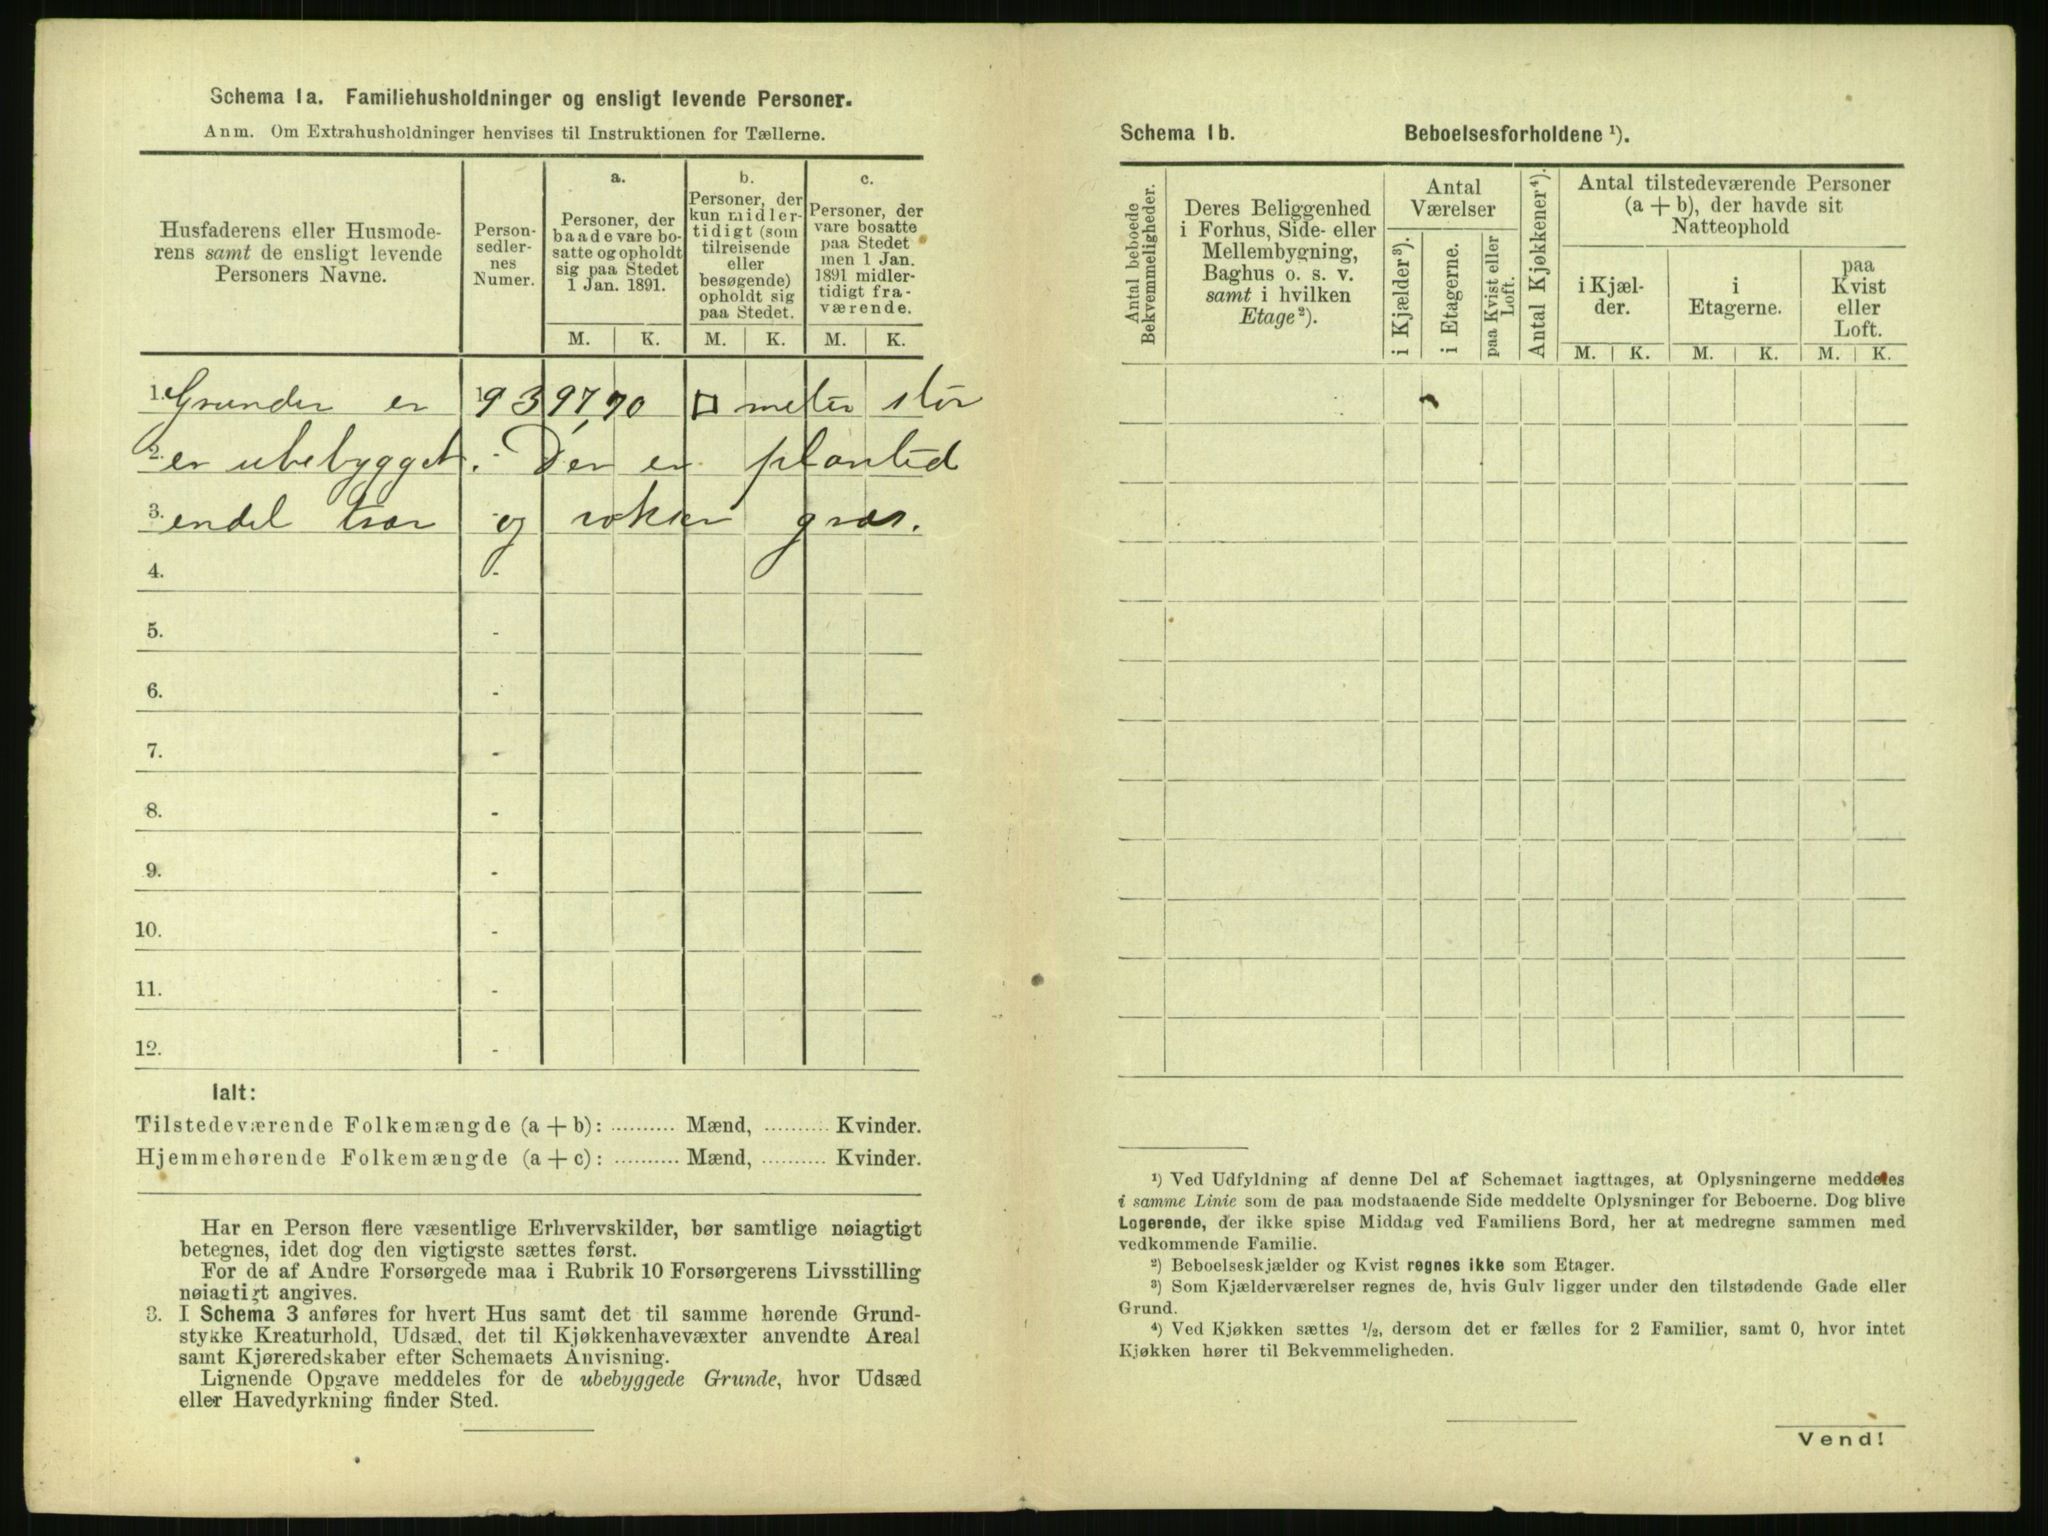 Schema 1a. Familiehusholdninger og ensligt levende Personer.
Anm. Om Extrahusholdninger henvises til Instruktionen for Tællerne.
Husfaderens eller Husmode-
rens samt de ensligt levende
Personers Navne.
Person-
sedler-
nes
Numer.
a.
Personer, der
baade vare bo-
satte og opholdt
sig paa Stedet
1 Jan. 1891.
b.
Personer, der
kun midler-
tidigt (som
tilreisende
eller
besøgende)
opholdt sig
paa Stedet.
c.
Personer, der
vare bosatte
paa Stedet
men 1 Jan.
1891 midler-
tidigt fra-
værende.
M. K. M. K. M. K.
1. Grunden er 939,70 □ meter stor
2. er ubebygget. Der er planted
3. endel trær og vokser græs.
4. -
5. -
6. -
7. -
8. -
9. -
10. -
11. -
12. -
Ialt:
Tilstedeværende Folkemængde (a + b): .......... Mænd, .......... Kvinder.
Hjemmehørende Folkemængde (a + c): .......... Mænd, .......... Kvinder.
Har en Person flere væsentlige Erhvervskilder, bør samtlige nøiagtigt
betegnes, idet dog den vigtigste sættes først.
For de af Andre Forsørgede maa i Rubrik 10 Forsørgerens Livsstilling
nøiagtigt angives.
3. I Schema 3 anføres for hvert Hus samt det til samme hørende Grund-
stykke Kreaturhold, Udsæd, det til Kjøkkenhavevæxter anvendte Areal
samt Kjøreredskaber efter Schemaets Anvisning.
Lignende Opgave meddeles for de ubebyggede Grunde, hvor Udsæd
eller Havedyrkning finder Sted.
Schema 1b. Beboelsesforholdene ¹).
Antal beboede
Bekvemmeligheder.
Deres Beliggenhed
i Forhus, Side- eller
Mellembygning,
Baghus o. s. v.
samt i hvilken
Etage ²).
Antal
Værelser
i Kjælder ³).
i Etagerne.
paa Kvist eller
Loft.
Antal Kjøkkener ⁴).
Antal tilstedeværende Personer
(a + b), der havde sit
Natteophold
i Kjæl-
der.
i
Etagerne.
paa
Kvist
eller
Loft.
M. K. M. K. M. K.
¹) Ved Udfyldning af denne Del af Schemaet iagttages, at Oplysningerne meddeles
i samme Linie som de paa modstaaende Side meddelte Oplysninger for Beboerne. Dog blive
Logerende, der ikke spise Middag ved Familiens Bord, her at medregne sammen med
vedkommende Familie.
²) Beboelseskjælder og Kvist regnes ikke som Etager.
³) Som Kjælderværelser regnes de, hvis Gulv ligger under den tilstødende Gade eller
Grund.
⁴) Ved Kjøkken sættes ½, dersom det er fælles for 2 Familier, samt 0, hvor intet
Kjøkken hører til Bekvemmeligheden.
Vend!